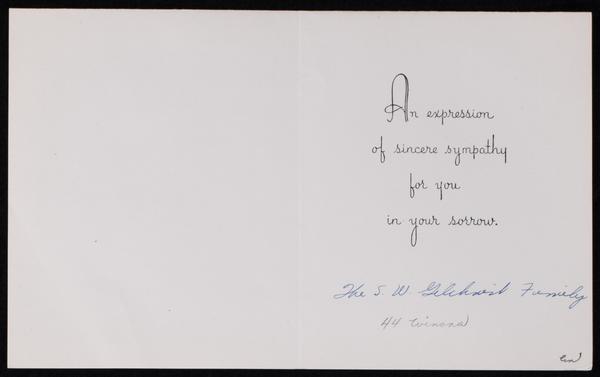 An expression
of sincere sympathy
for you
in your sorrow.
The S. W. Gilchrist Family
44 Winona